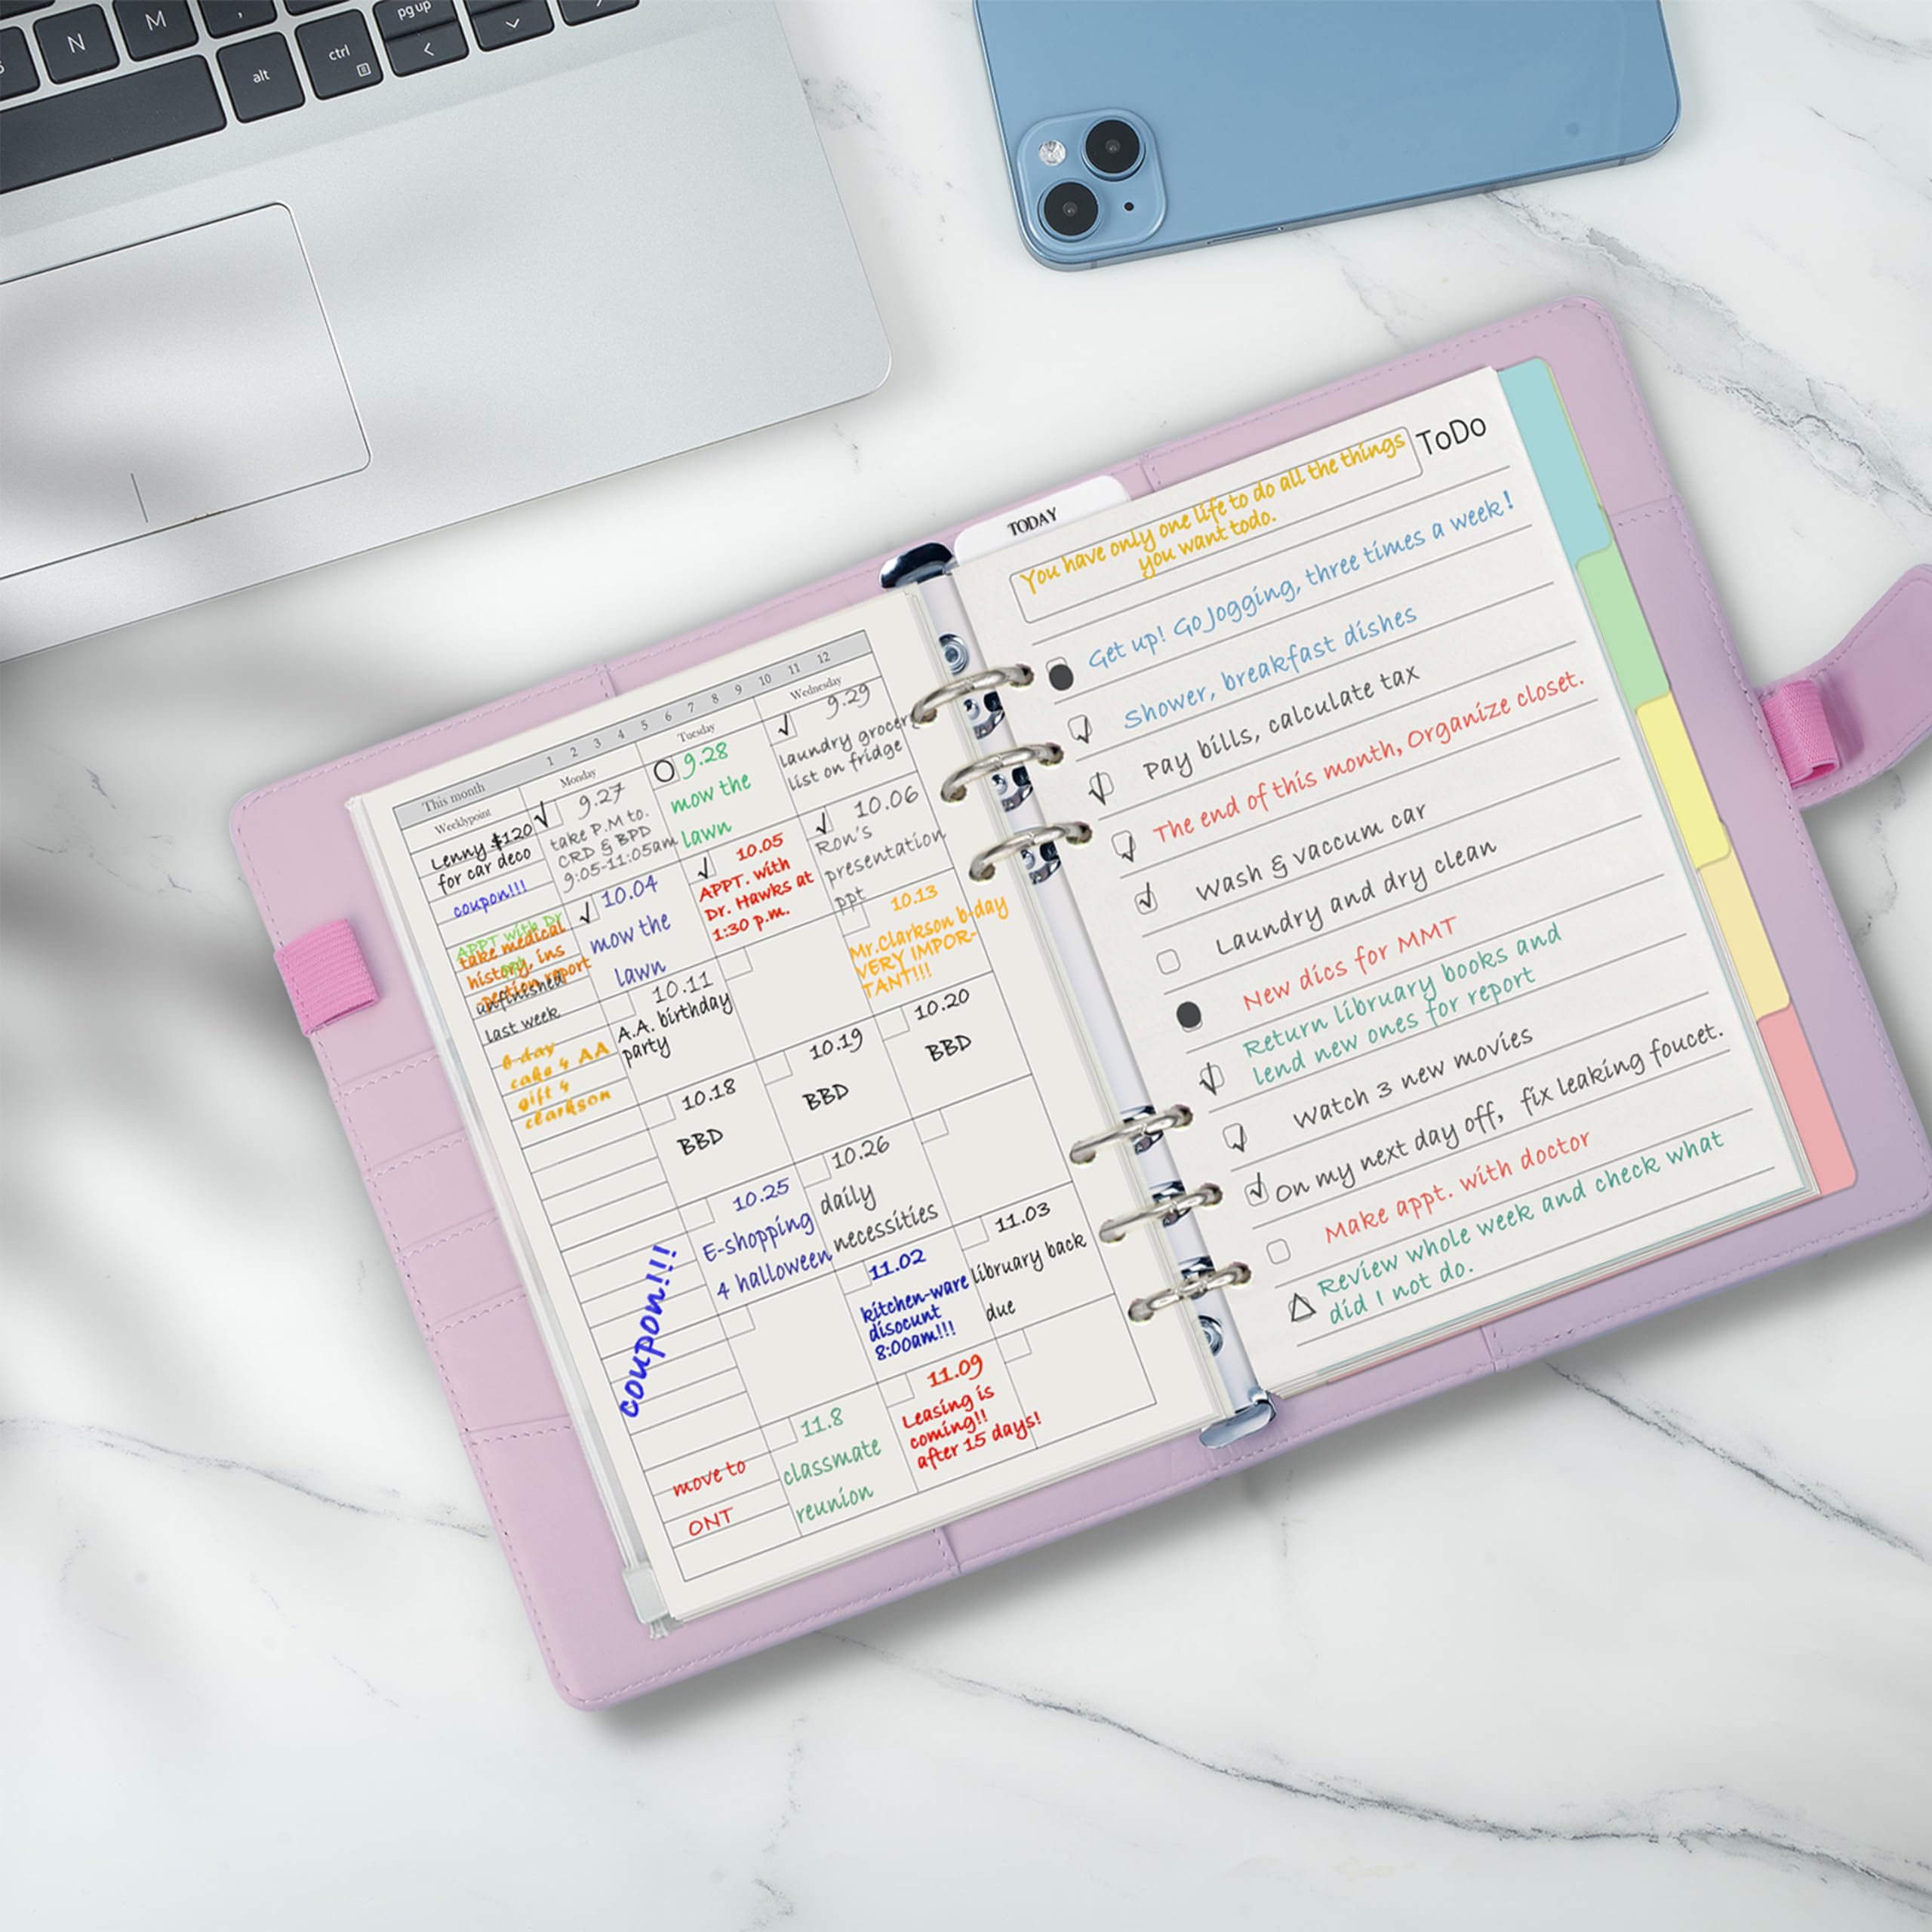 N
M
,
alt
ctrl
pg up
TODAY
This month
1 2 3 4 5 6 7 8 9 10 11 12
Weeklypoint
Monday
Tuesday
Wednesday
Lenny $120
for car deco
coupon!!!
APPT with Dr
take medical
history, ins
pection report
unfinished
last week
B-day
cake 4 AA
gift 4
clarkson
coupon!!!
move to
ONT
9.27
take P.M to.
CRD & BPD
9:05-11:05am
9.28
mow the
lawn
9.29
laundry grocery
list on fridge
10.04
mow the
lawn
10.05
APPT. with
Dr. Hawks at
1:30 p.m.
10.06
Ron's
presentation
ppt
10.11
A.A. birthday
party
10.13
Mr.Clarkson b-day
VERY IMPOR-
TANT!!!
10.18
BBD
10.19
BBD
10.20
BBD
10.25
E-shopping
4 halloween
10.26
daily
necessities
11.02
kitchen-ware
disocunt
8:00am!!!
11.03
library back
due
11.8
classmate
reunion
11.09
Leasing is
coming!!
after 15 days!
You have only one life to do all the things
you want todo.
ToDo
Get up! Go Jogging, three times a week!
Shower, breakfast dishes
Pay bills, calculate tax
The end of this month, Organize closet.
Wash & vaccum car
Laundry and dry clean
New dics for MMT
Return libruary books and
lend new ones for report
Watch 3 new movies
On my next day off, fix leaking foucet.
Make appt. with doctor
Review whole week and check what
did I not do.